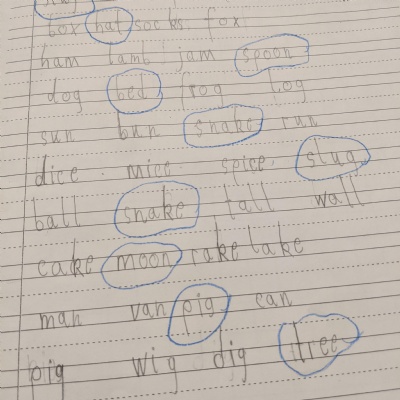 box hat socks fox
ham lamb jam spoon
dog bed frog log
sun bun snake run
dice mice spice slug
ball snake tall wall
cake moon rake lake
man van pig can
pig wig dig tree